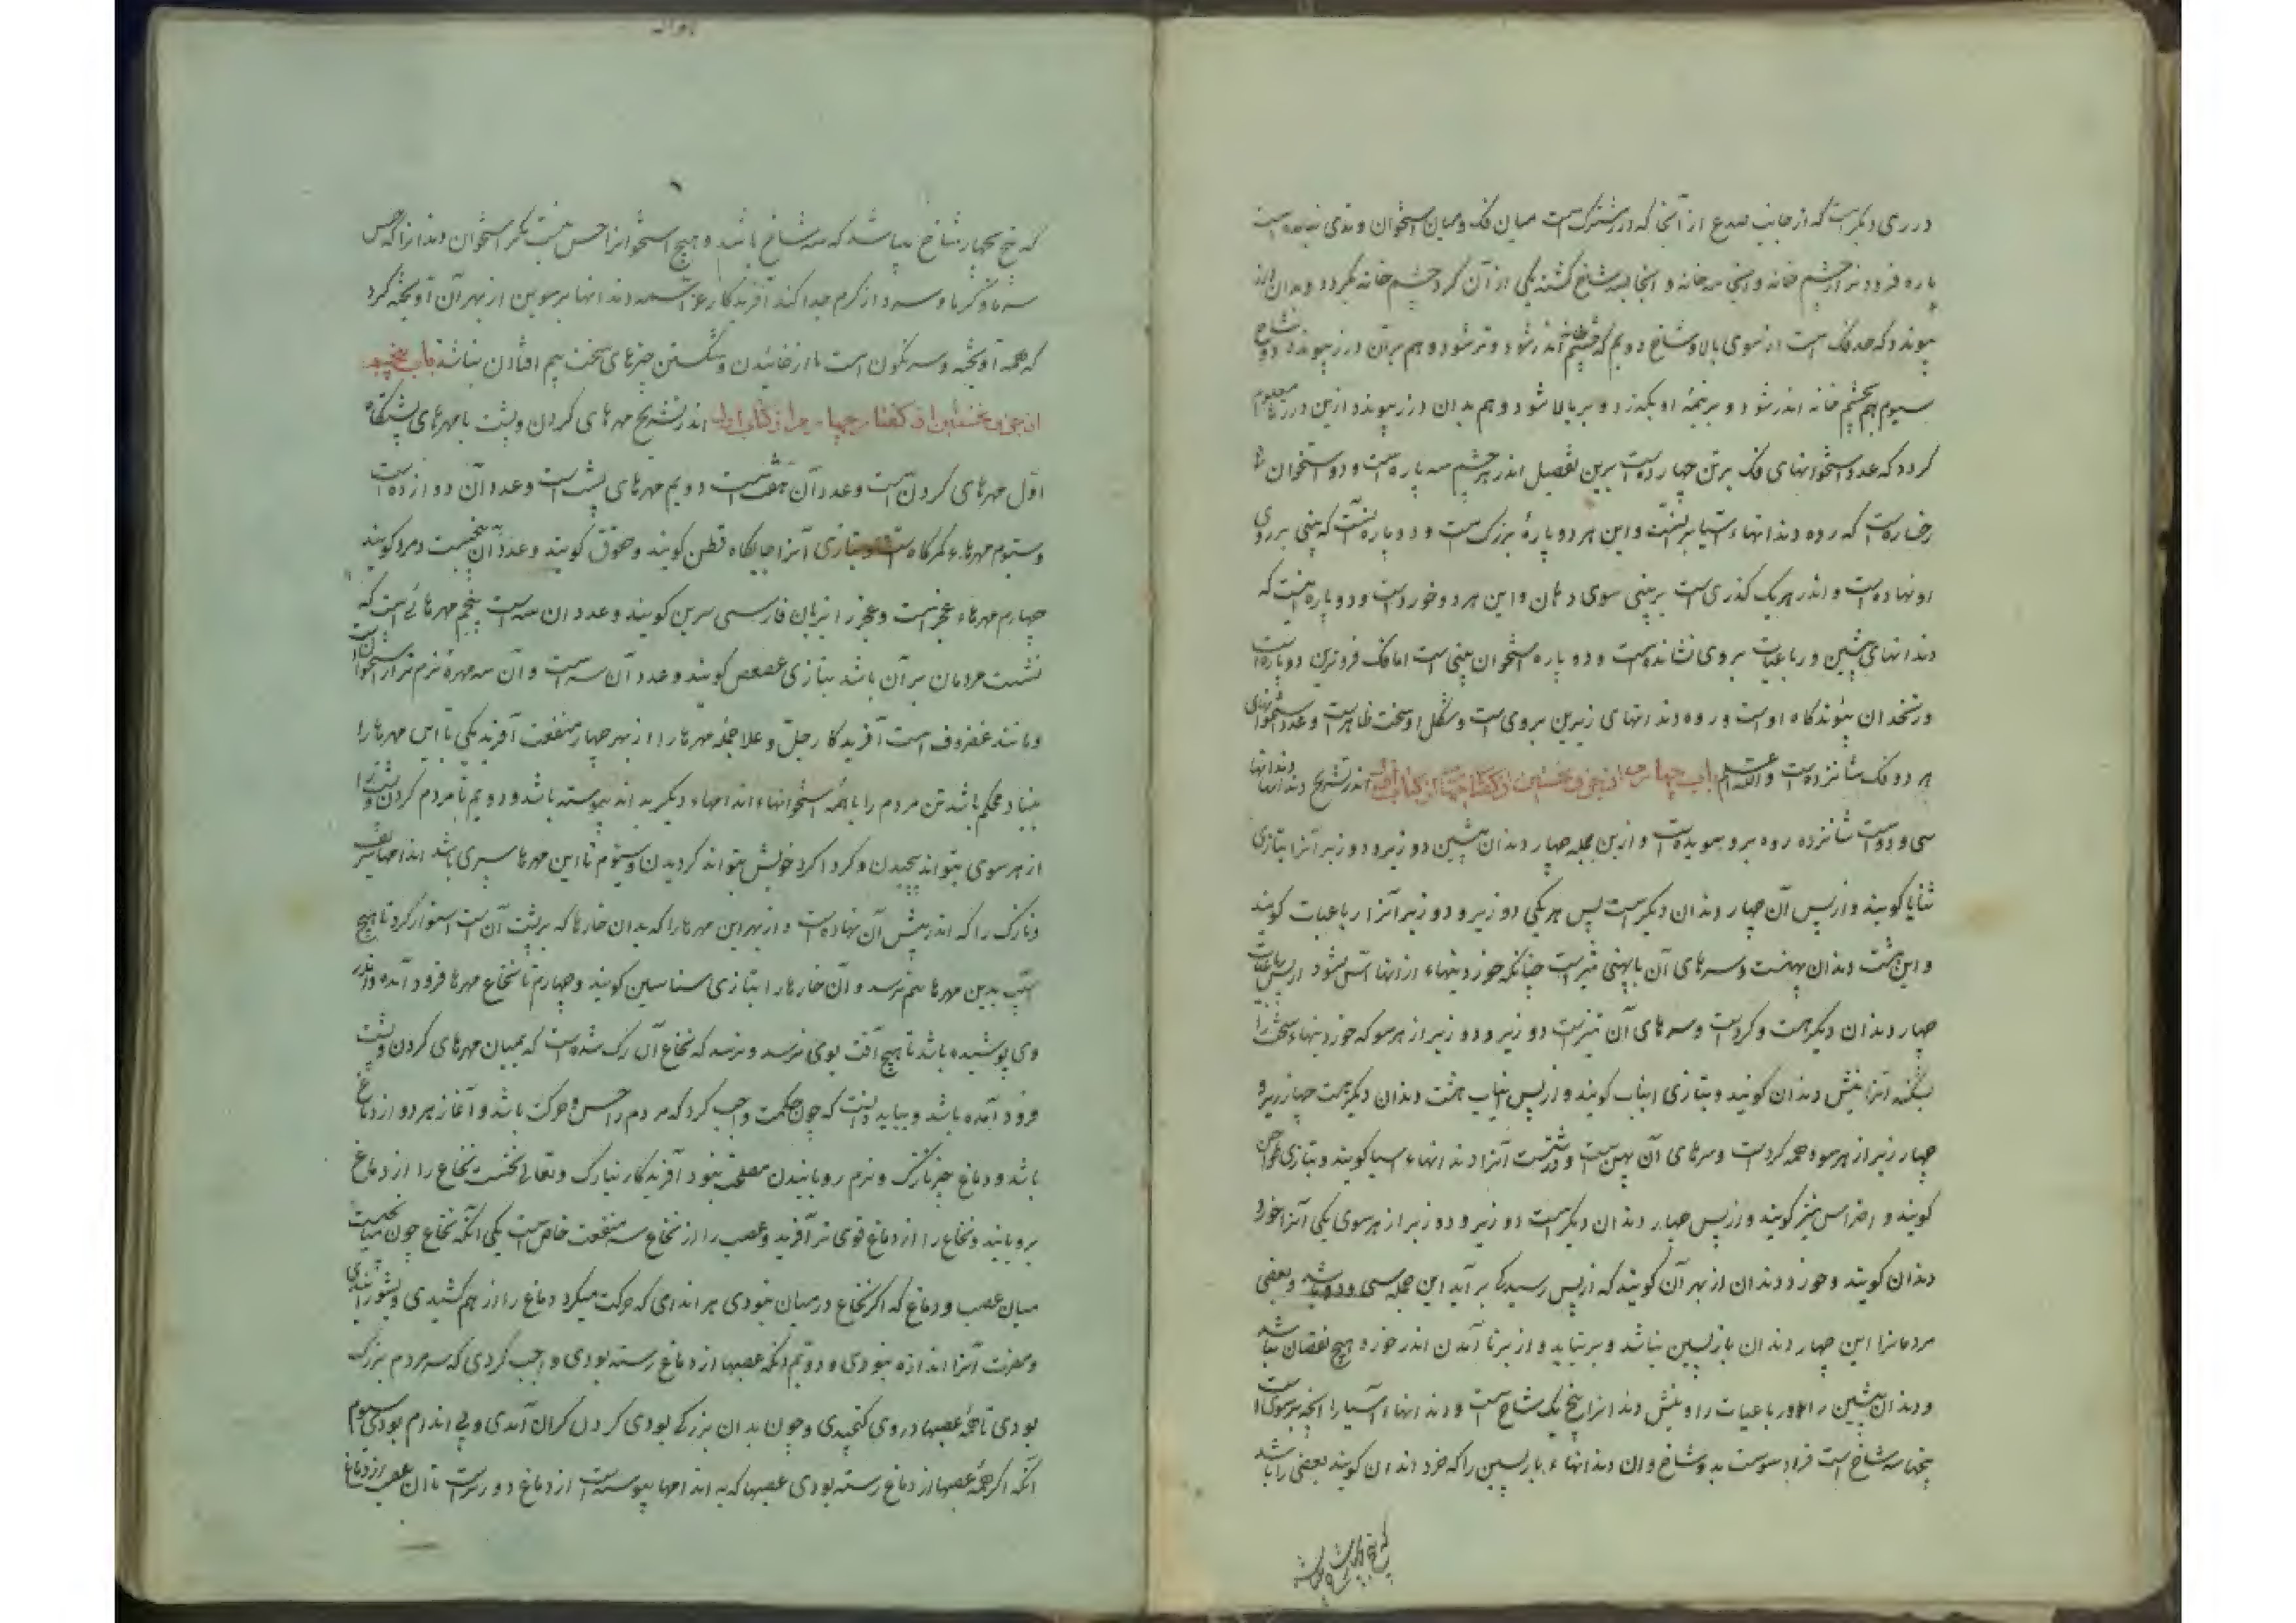 درزی دیکرست که از جانب صدغ از آنجا که درز مشترکست میان فک و میان استخوان وتدی نهاده است
پاره فرود تر از چشم خانه و آنجا سه خانه و آنجا بسه شاخ کشته یکی از آن کرد چشم خانه بکردد و بدان درز
پیوندد که حد فک است از سوی بالا و شاخ دویم که بچشم خانه اندر شود و تر شود و هم بر آن درز پیوندد و شاخ
سیوم هم بچشم خانه اندر شود و بر نیمه او بکذرد و بر بالا شود و هم بدان درز پیوندد ازین درزها معلوم
کردد که عدد استخوانهای فک برین چهارده است برین تفصیل اندر هر چشم سه پاره است و دو استخوان
رخساره است که رده دندانهاء آسیا بر آنست و این هر دو پارۀ بزرک است و دو پاره آنست که بینی بر روی
او نهاده است و اندر هر یک کذری است بر بینی سوی دهان و این هر دو خورد است و دو پاره است که
دندانهای پیشین و رباعیات بروی نشانده است و دو پاره استخوان بینی است اما فک فروترین دو پاره است
و زنخدان پیوند کاه اوست و رده دندانهای زیرین بروی است و شکل او سخت ظاهر است و عدد استخوانهای
هر دو فک شانزده است و الله اعلم باب چهارم از جزو نخستین از کفتار چهارم از کتاب اول اندر تشریح دندانها دندانها
سی و دو است شانزده رده بر و سویدست و ازین جمله چهار دندان پیشین دو زیر و دو زبر آنرا بتازی
ثنایا کویند و از پس آن چهار دندان دیکرست پس هر یکی دو زیر و دو زبر آنرا رباعیات کویند
و این هشت دندان پهنست و سرهای آن با پهنی تیز است چنانکه خوردنیهاء از آنها آس شود از پس رباعیات
چهار دندان دیکر هست و کردست و سرهای آن تیزست دو زیر و دو زبر از هر سو که خوردنیهاء سخت را
بشکند آنرا نیش دندان کویند و بتازی انیاب کویند و از پس انیاب هشت دندان دیکر هست چهار زیر و
چهار زبر از هر سوه همه کردست و سرهای آن پهن است و درشتست آنرا دندانهاء آسیا کویند و بتازی طواحن
کویند و اضراس نیز کویند و از پس چهار دندان دیکرست دو زیر و دو زبر از هر سوی یکی آنرا خورد
دندان کویند و خورد دندان از بهر آن کویند که از پس رسیدکی بر آید این جمله سی و دو باشد و بعضی
مردمانرا این چهار دندان بازپسین نباشد و بر نیاید و از بر نا آمدن اندر خورد هیچ نقصان نباشد
و دندان پیشین را و رباعیات را و نیش دندانرا بیخ یک شاخ است و دندانهاء آسیا را آنچه بر سوی است
بیخها سه شاخ است و آنچه فرود سوست بدو شاخ و آن دندانهاء بازپسین را که خرد دندان کویند بعضی را باشد
که بیخ چهار شاخ باشد
که بیخ بچهار شاخ باشد که سه شاخ باشد و هیچ استخوانرا حس نیست مکر استخوان دندانرا که حس
تا کرما و سرد از کرم جدا کند آفریدکار عز اسمه دندانها برسوین از بهر آن آویخته کرد
که همه آویخته و سرنکون است تا از خائیدن و شکستن چیزهای سخت بیم افتادن نباشد باب پنجم
از جزو نخستین از کفتار چهارم از کتاب اول اندر تشریح مهرهای کردن و پشت با مهرهای نشستکاه
اول مهرهای کردنست و عدد آن هفت است دویم مهرهای پشت است و عدد آن دوازده است
و سیوم مهرهاء کمرکاه است و بتازی آنرا جایکاه قطن کویند و حقو کویند و عدد آن پنجست و مرد کویند
چهارم مهرهاء عجزست و عجز را بزبان فارسی سرین کویند و عدد آن سه است پنجم مهرهائی است که
نشست مردمان بر آن باشد بتازی عصعص کویند و عدد آن سه است و آن سه مهره نرم تر از استخوان است
و مانند غضروف است آفریدکار جل و علا جمله مهرها را از بهر چهار منفعت آفرید یکی تا این مهرها را
بنیاد محکم باشد تن مردم را با همه استخوانهاء اندامهاء دیکر بد اند پیوسته باشد و دویم تا مردم کردن و پشت را
از هر سوی بتواند پیچیدن و کرداکرد خویش بتواند کردیدن و سیوم تا این مهرها سپری باشد اندامهاء شریف
و نازک را که اندر پیش آن نهاده است و از بهر این مهرها را که بدان خارها که بر پشت آن است استوار کرد تا هیچ
آسیب بدین مهرها ستم نرسد و آن خارها را بتازی سناسین کویند و چهارم تا نخاع مهرها فرود آمده و اندر
وی پوشیده باشد تا هیچ آفت بوی نرسد و نرسد که نخاع آن رک شده است که بمیان مهرهای کردن و پشت
فرود آمده باشد و بباید دانست که چون حکمت واجب کرد که مردم را حس و حرکت باشد و آغاز هر دو از دماغ
باشد و دماغ چیز نازک و نرم رویانیدن مصلحت نبود آفریدکار تبارک و تعالی نخست نخاع را از دماغ
برویانید و نخاع را از دماغ قوی تر آفرید و عصب را از نخاع سه منفعت خاص است یکی آنکه نخاع چون میانجیست
میان عصب و دماغ که اکر نخاع در میان نبودی هر اندامی که حرکت میکرد دماغ را از هم کشیدی و بشورانیدی
و مضرت آنرا اندازه نبودی و دویم آنکه عصبها از دماغ رسته بودی واجب کردی که سر مردم بزرک
بودی تا همۀ عصبها در وی کنجیدی و چون بدان بزرکی بودی کردن کران آمدی و بی اندام بودی سیوم
آنکه اکر همۀ عصبها از دماغ رسته بودی عصبها که به اندامها پیوسته است از دماغ دور است تا آن عصب از دماغ